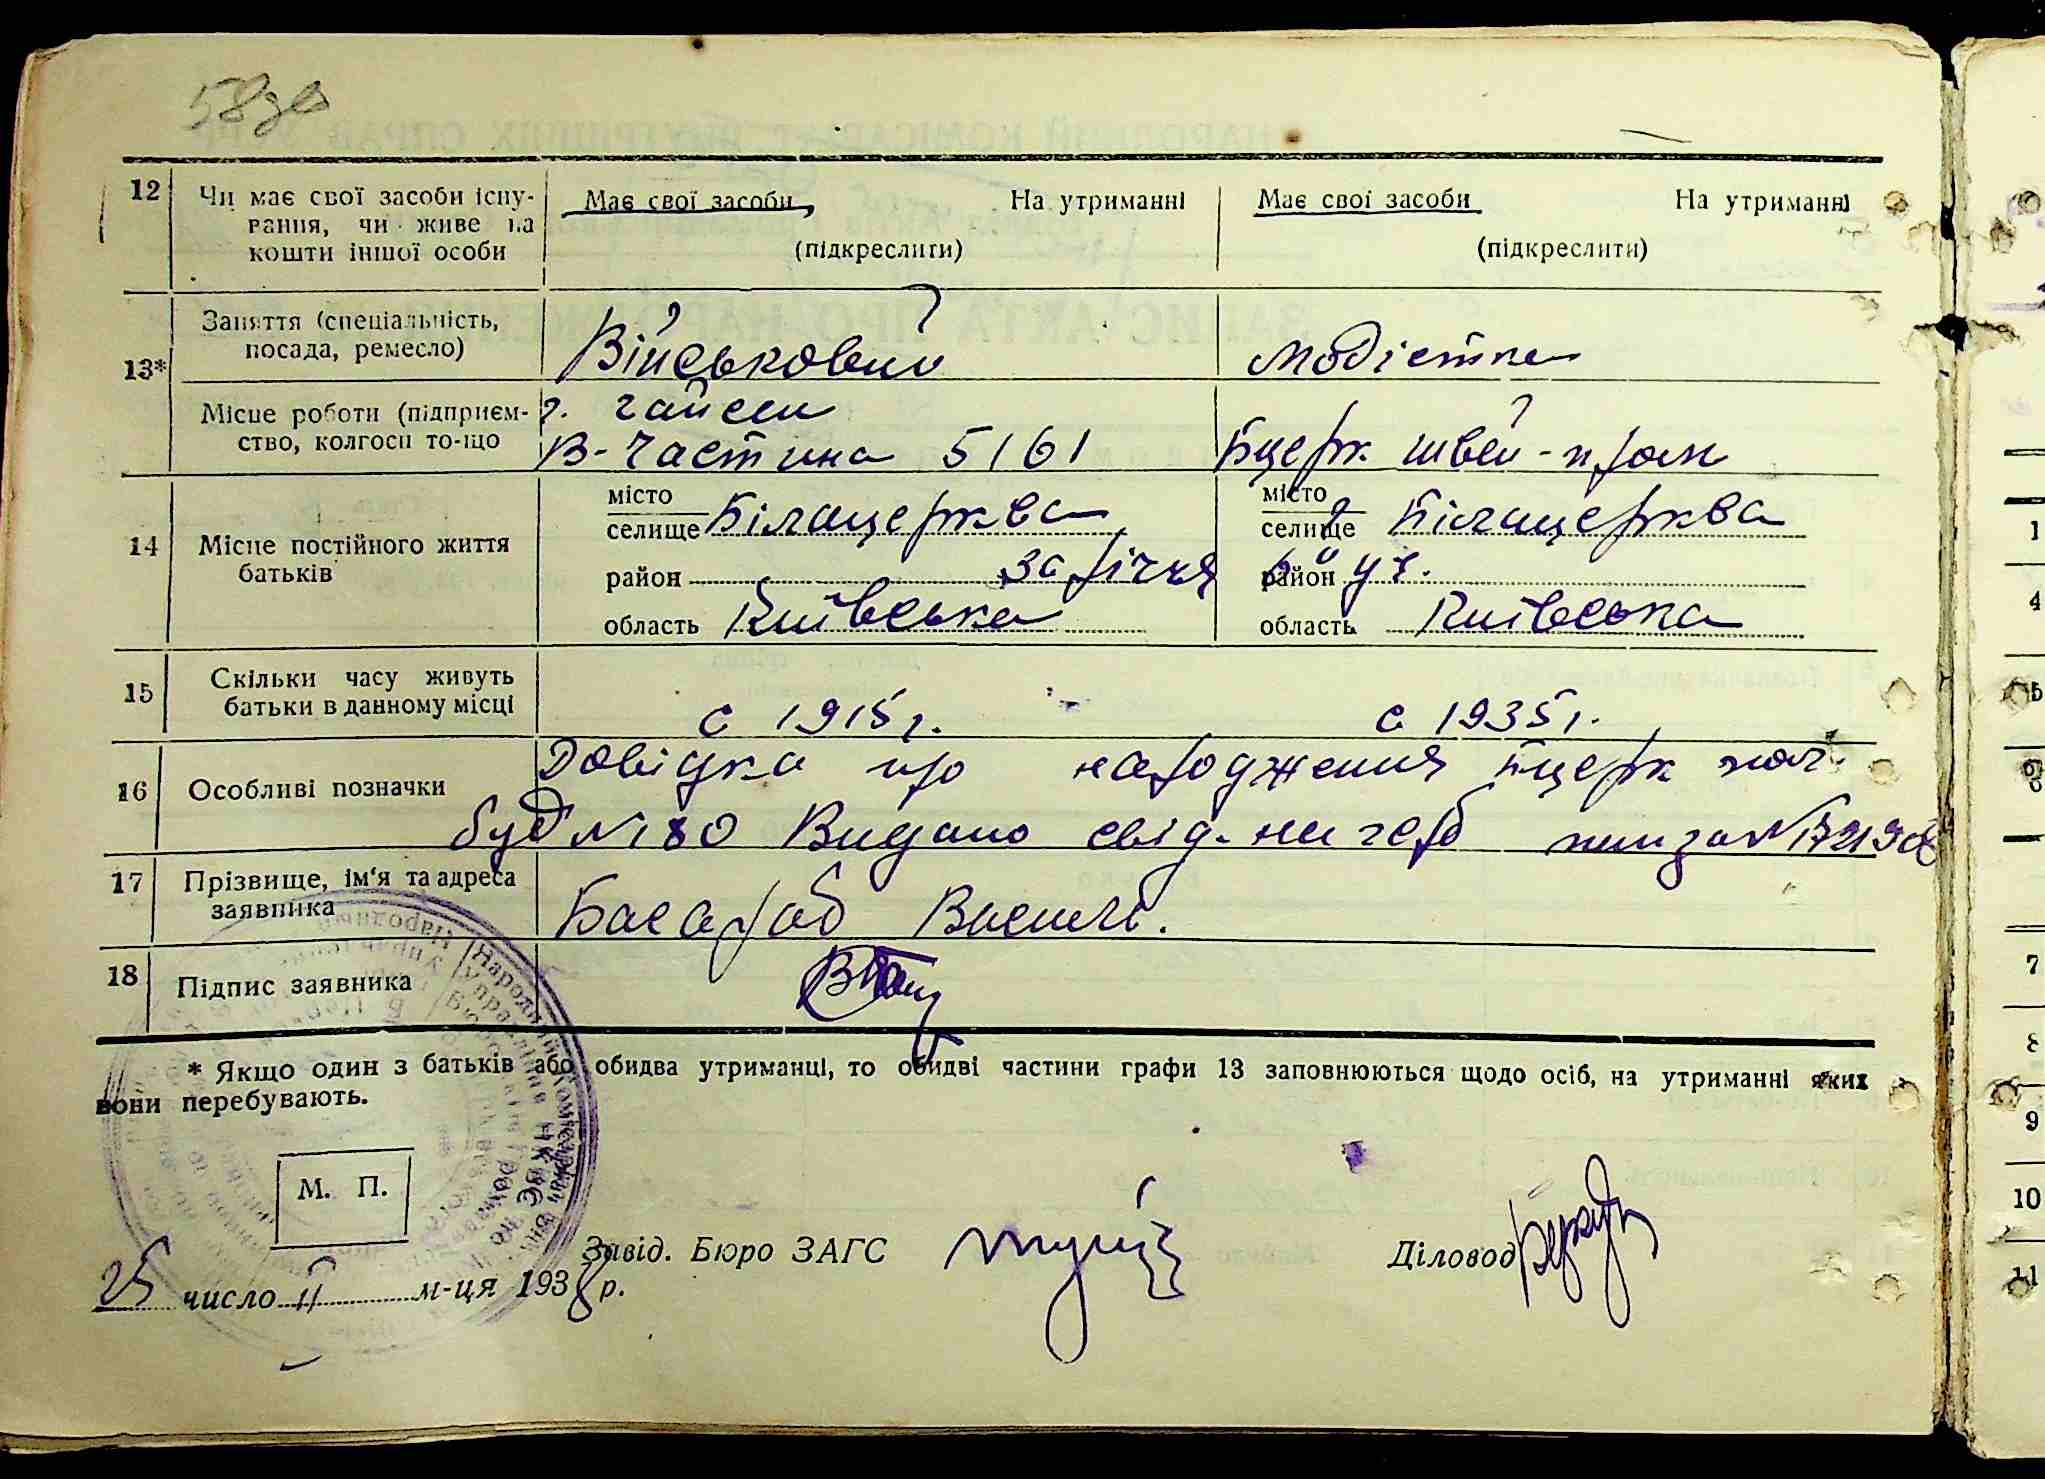 58зв
12 Чи має свої засоби існу- Має свої засоби, На утриманні Має свої засоби На утриманні
вання, чи живе на
кошти іншої особи (підкреслити) (підкреслити)
Заняття (спеціальність,
13* посада, ремесло) Військовий модістка
Місце роботи (підприєм- г. Гайсин
ство, колгосп то-що В-Частина 5161 Бцерк швей-пром
місто місто
селище Білацерква селище Білацерква
14 Місце постійного життя
батьків район зарічча район
область Київська область Київська
15 Скільки часу живуть
батьки в данному місці с 1915 г. с 1935 г.
16 Особливі позначки Довідка про народження Бцерк пол.
буд № 80 Видано свід-
17 Прізвище, ім'я та адреса
заявника Басараб Василь.
18 Підпис заявника
* Якщо один з батьків або обидва утриманці, то обидві частини графи 13 заповнюються щодо осіб, на утриманні яких
вони перебувають.
М. П.
Завід. Бюро ЗАГС Діловод
25 число II м-ця 1938 р.
1
4
5
6
7
8
9
10
11